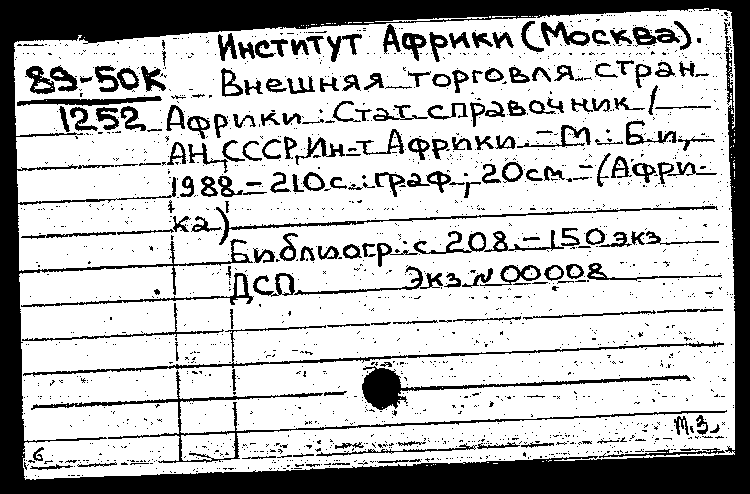 Институт Африки (Москва).
89-50К
1252
Внешняя торговля стран
Африки : Стат. справочник /
АН СССР, Ин-т Африки. - М.: Б.и.,
1988. - 210 с. : граф ; 20 см. - (Афри-
ка)
Библиогр.: с. 208. - 150 экз
ДСП. Экз. № 00008
М.З.
6